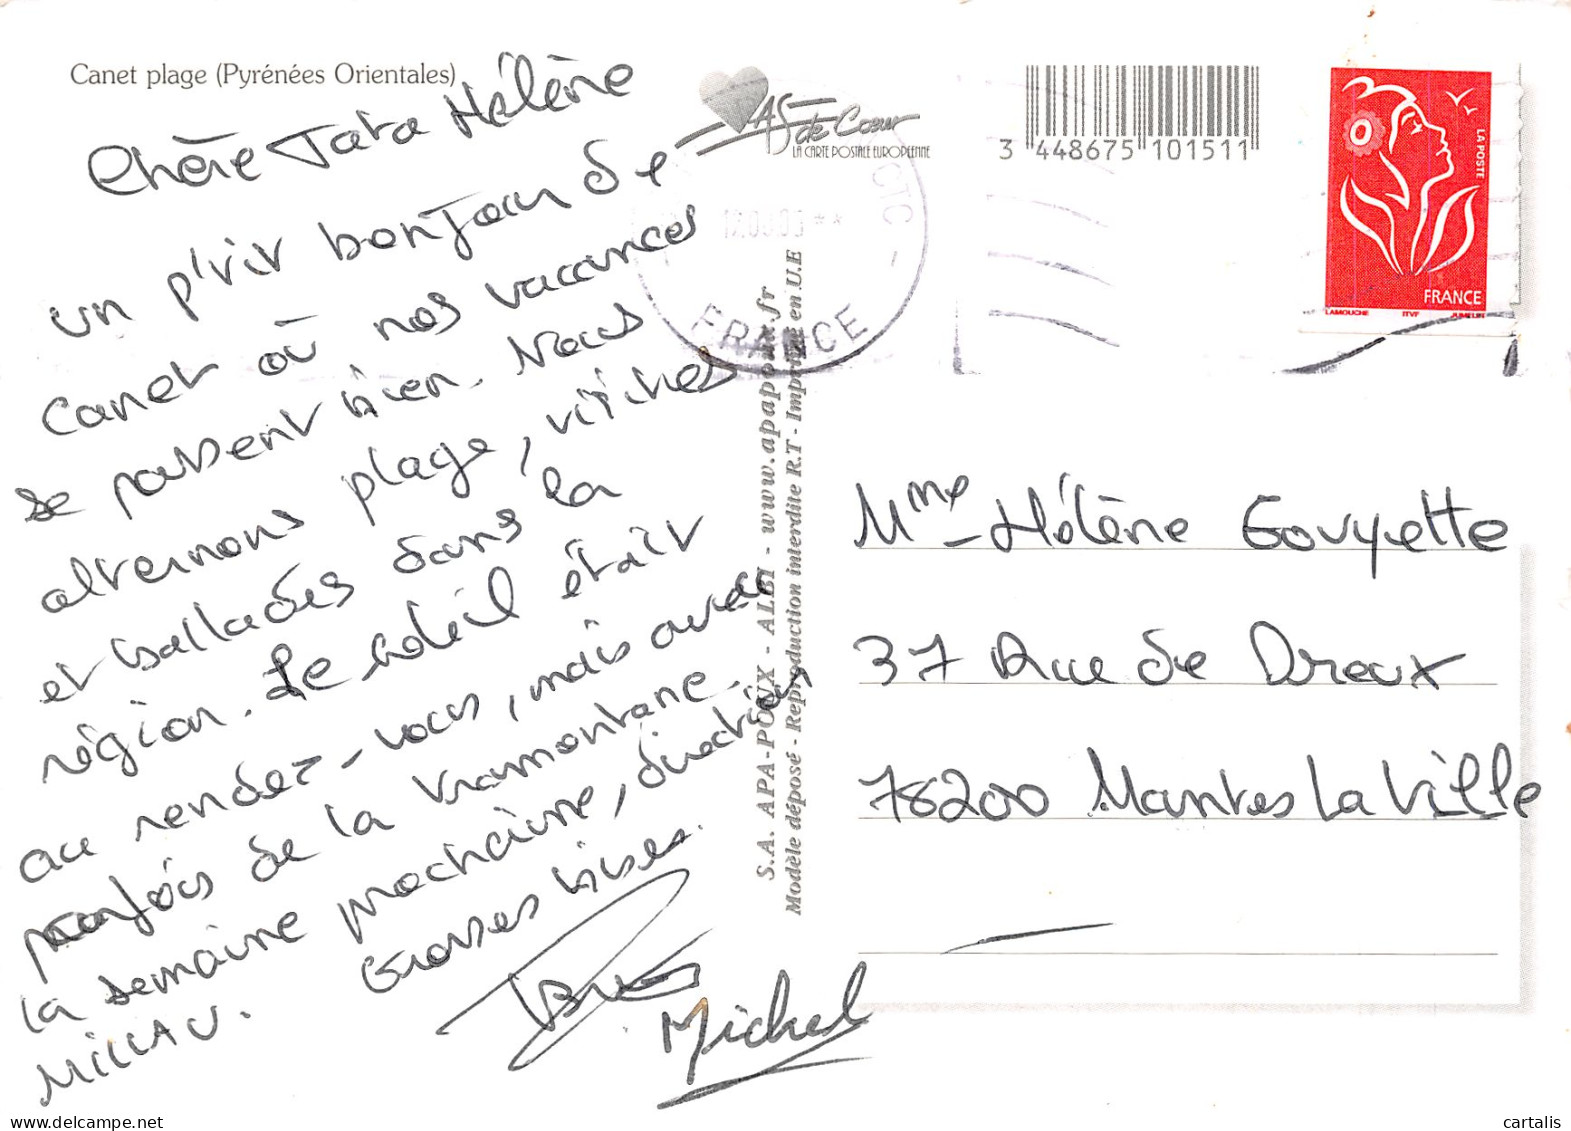 Canet plage (Pyrénées Orientales)
Chère Tata Hélène
un p'tit bonjour de
Canet où nos vacances
se passent bien. Nous
alternons plage, visites
et ballades dans la
région. Le soleil était
au rendez-vous, mais avec
parfois de la tramontane.
la semaine prochaine, direction
MILLAU.
Grosses bises.
Michel
AS de Cœur
LA CARTE POSTALE EUROPÉENNE
3 448675 101511
CTC -
FRANCE
LA POSTE
FRANCE
LAMOUCHE ITVF JUMELIN
S.A. APA-POUX - ALBI - www.apapoux.fr
Modèle déposé - Reproduction interdite R.T - Imprimé en U.E
Mme Hélène Gouyette
37 Rue de Dreux
78200 Mantes La Ville
cartalis